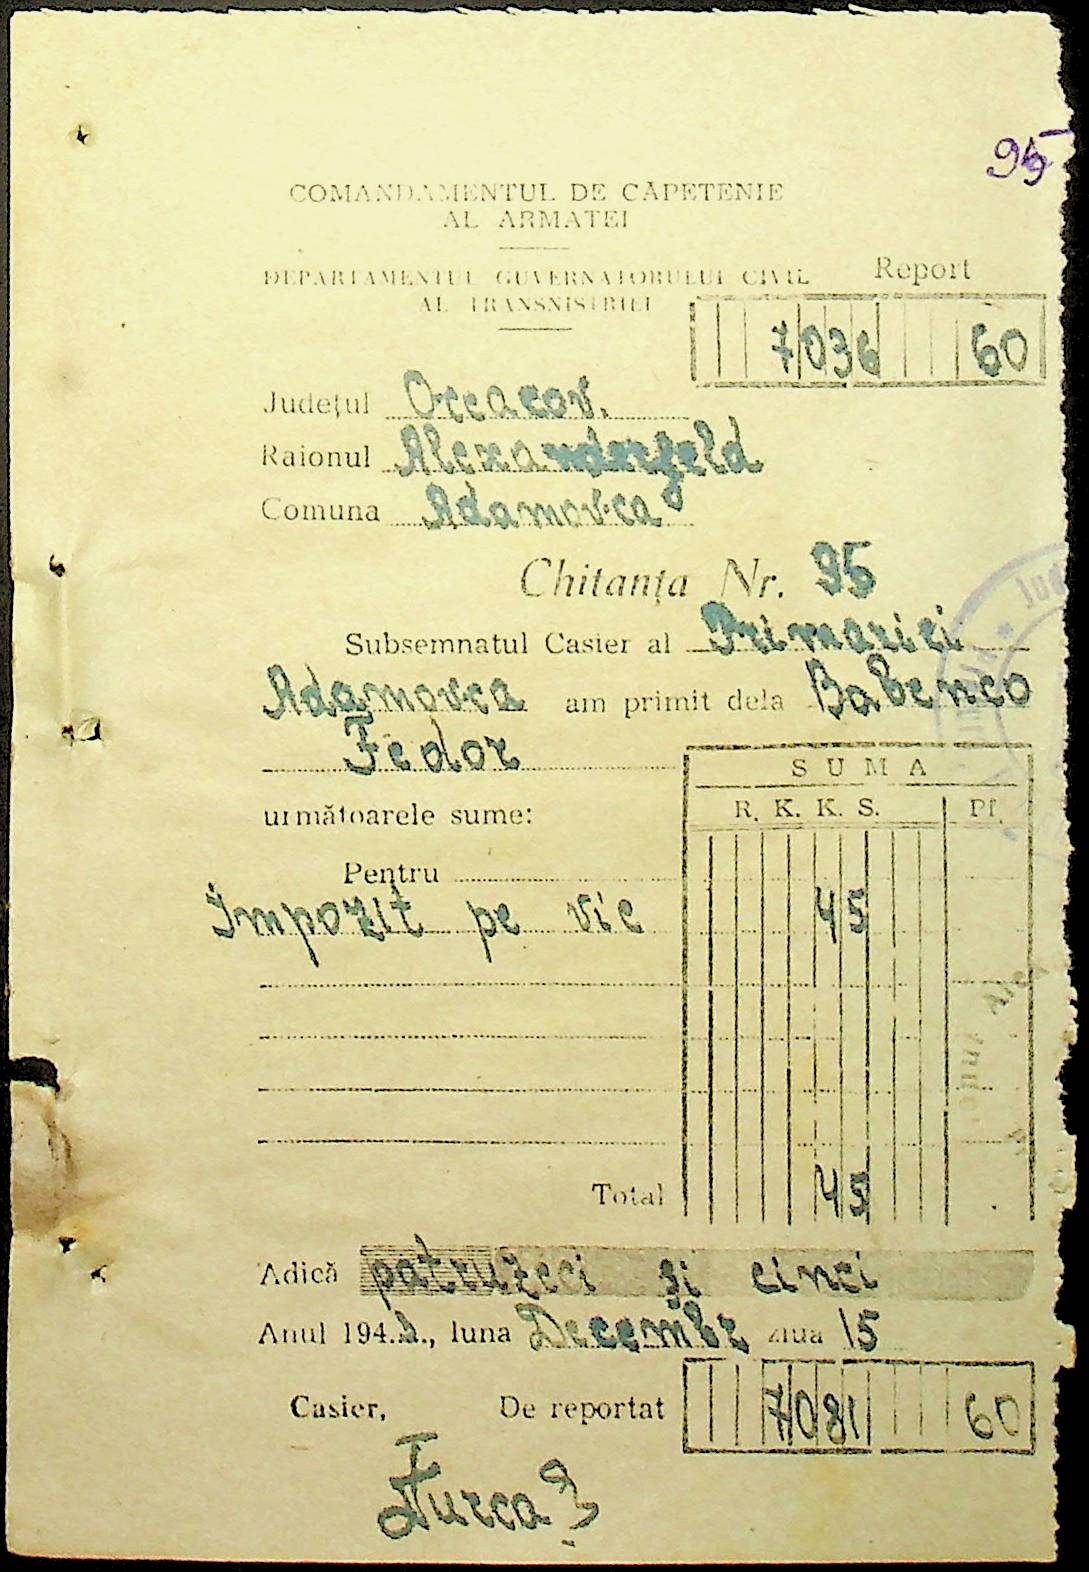 95
COMANDAMENTUL DE CĂPETENIE
AL ARMATEI
DEPARTAMENTUL GUVERNATORULUI CIVIL
AL TRANSNISTRIEI
Report
7036 60
Judeţul Oceacov.
Raionul Alexanderfeld
Comuna Adamovca
Chitanţa Nr. 95
Subsemnatul Casier al Primariei
Adamovca am primit dela Babenco
Fedor
următoarele sume:
SUMA
R. K. K. S. Pf.
Pentru
Impozit pe vie 45
Total 45
Adică patruzeci şi cinci
Anul 194 , luna Decembr ziua 15
Casier, De reportat 7081 60
Jud
Alex